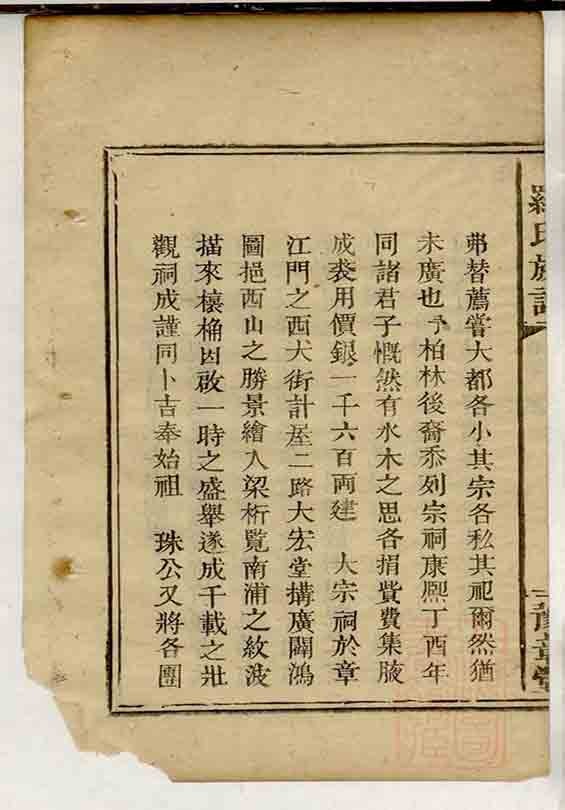 羅氏族譜
弗替薦嘗大都各小其宗各私其祀爾然猶
未廣也予柏林後裔忝列宗祠康熈丁酉年
同諸君子慨然有水木之思各捐貲費集腋
成裘用價銀一千六百両建 大宗祠於章
江門之西大街計屋二路大宏堂搆廣闢鴻
圖挹西山之勝景繪入梁桁覧南浦之紋波
描來榱桷因啟一時之盛舉遂成千載之壯
觀祠成謹同卜吉奉始祖 珠公又將各團
豫章堂